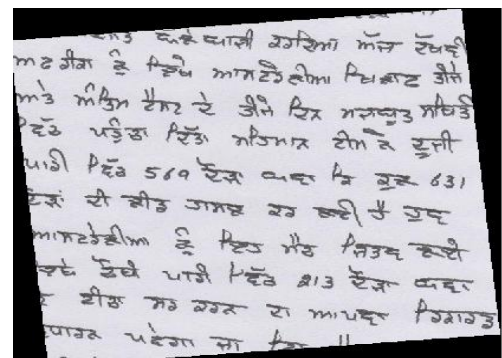 ਬੱਲੇਬਾਜ਼ੀ ਕਰਦਿਆਂ ਅੱਜ ਦੱਖਣੀ
ਅਫਰੀਕਾ ਨੂੰ ਇਥੇ ਆਸਟਰੇਲੀਆ ਖਿਲਾਫ ਤੀਜੇ
ਅਤੇ ਅੰਤਿਮ ਟੈਸਟ ਦੇ ਤੀਜੇ ਦਿਨ ਮਜ਼ਬੂਤ ਸਥਿਤੀ
ਵਿੱਚ ਪਹੁੰਚਾ ਦਿੱਤਾ ਮਹਿਮਾਨ ਟੀਮ ਨੇ ਦੂਜੀ
ਪਾਰੀ ਵਿੱਚ 569 ਦੌੜਾਂ ਬਣਾ ਕੇ ਕੁਲ 631
ਦੌੜਾਂ ਦੀ ਲੀਡ ਹਾਸਲ ਕਰ ਲਈ ਹੈ ਹੁਣ
ਆਸਟਰੇਲੀਆ ਨੂੰ ਇਹ ਮੈਚ ਜਿਤਣ ਲਈ
ਚੌਥੀ ਪਾਰੀ ਵਿੱਚ 213 ਦੌੜਾਂ ਬਣਾ
ਟੀਚਾ ਸਰ ਕਰਨ ਦਾ ਆਪਣਾ ਰਿਕਾਰਡ
ਪਵੇਗਾ ਜਾਂ